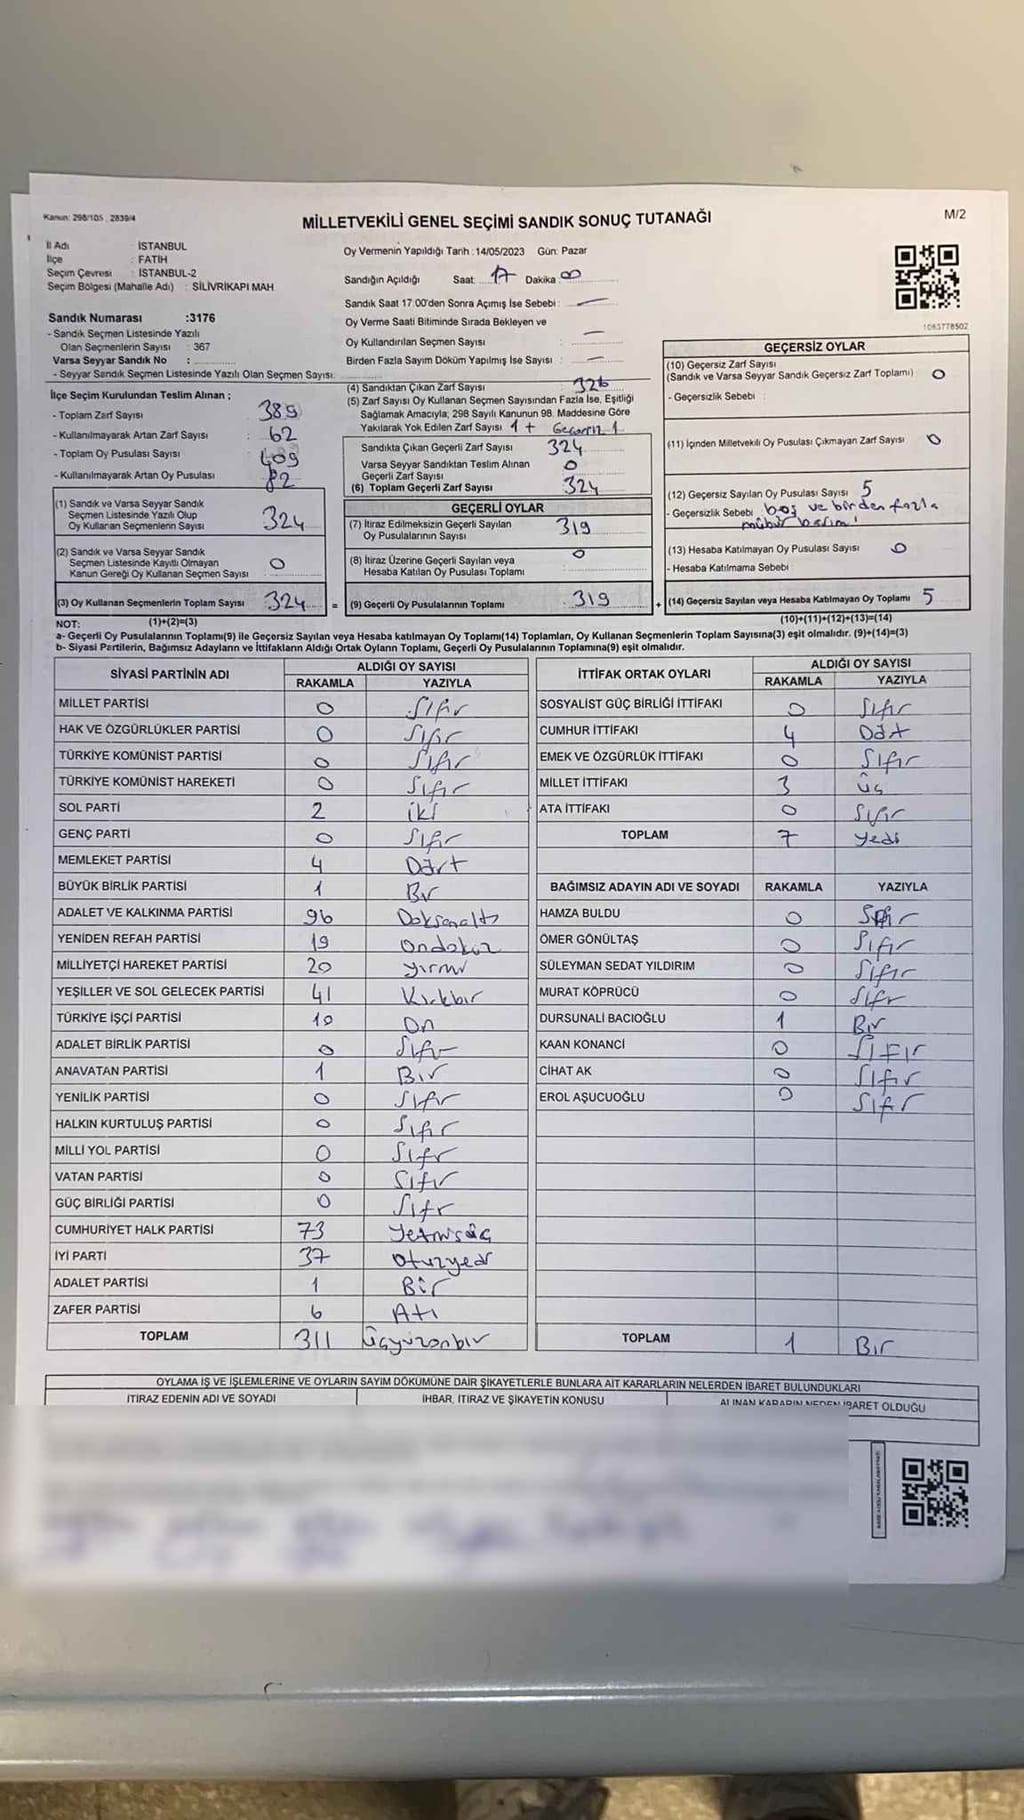 Kanun: 298/105 , 2839/4
MİLLETVEKİLİ GENEL SEÇİMİ SANDIK SONUÇ TUTANAĞI
M/2
İl Adı : İSTANBUL
İlçe : FATİH
Seçim Çevresi : İSTANBUL-2
Seçim Bölgesi (Mahalle Adı) : SİLİVRİKAPI MAH
Sandık Numarası :3176
- Sandık Seçmen Listesinde Yazılı
Olan Seçmenlerin Sayısı : 367
Varsa Seyyar Sandık No :
- Seyyar Sandık Seçmen Listesinde Yazılı Olan Seçmen Sayısı:
Oy Vermenin Yapıldığı Tarih : 14/05/2023 Gün: Pazar
Sandığın Açıldığı Saat: 17 Dakika: 00
Sandık Saat 17:00'den Sonra Açımış İse Sebebi : —
Oy Verme Saati Bitiminde Sırada Bekleyen ve
Oy Kullandırılan Seçmen Sayısı : —
Birden Fazla Sayım Döküm Yapılmış İse Sayısı : —
1083778502
İlçe Seçim Kurulundan Teslim Alınan ;
- Toplam Zarf Sayısı : 389
- Kullanılmayarak Artan Zarf Sayısı : 62
- Toplam Oy Pusulası Sayısı : 409
- Kullanılmayarak Artan Oy Pusulası : 82
(1) Sandık ve Varsa Seyyar Sandık
Seçmen Listesinde Yazılı Olup
Oy Kullanan Seçmenlerin Sayısı 324
(2) Sandık ve Varsa Seyyar Sandık
Seçmen Listesinde Kayıtlı Olmayan
Kanun Gereği Oy Kullanan Seçmen Sayısı 0
(3) Oy Kullanan Seçmenlerin Toplam Sayısı 324
(4) Sandıktan Çıkan Zarf Sayısı : 326
(5) Zarf Sayısı Oy Kullanan Seçmen Sayısından Fazla İse, Eşitliği
Sağlamak Amacıyla; 298 Sayılı Kanunun 98. Maddesine Göre
Yakılarak Yok Edilen Zarf Sayısı 1 + Geçersiz 1
Sandıkta Çıkan Geçerli Zarf Sayısı 324
Varsa Seyyar Sandıktan Teslim Alınan
Geçerli Zarf Sayısı 0
(6) Toplam Geçerli Zarf Sayısı 324
GEÇERLİ OYLAR
(7) İtiraz Edilmeksizin Geçerli Sayılan
Oy Pusulalarının Sayısı 319
(8) İtiraz Üzerine Geçerli Sayılan veya
Hesaba Katılan Oy Pusulası Toplamı 0
= (9) Geçerli Oy Pusulalarının Toplamı 319
GEÇERSİZ OYLAR
(10) Geçersiz Zarf Sayısı
(Sandık ve Varsa Seyyar Sandık Geçersiz Zarf Toplamı) 0
- Geçersizlik Sebebi :
(11) İçinden Milletvekili Oy Pusulası Çıkmayan Zarf Sayısı 0
(12) Geçersiz Sayılan Oy Pusulası Sayısı 5
- Geçersizlik Sebebi boş ve birden fazla
mühür basımı
(13) Hesaba Katılmayan Oy Pusulası Sayısı 0
- Hesaba Katılmama Sebebi
+ (14) Geçersiz Sayılan veya Hesaba Katılmayan Oy Toplamı 5
NOT: (1)+(2)=(3)
(10)+(11)+(12)+(13)=(14)
a- Geçerli Oy Pusulalarının Toplamı(9) ile Geçersiz Sayılan veya Hesaba katılmayan Oy Toplamı(14) Toplamları, Oy Kullanan Seçmenlerin Toplam Sayısına(3) eşit olmalıdır. (9)+(14)=(3)
b- Siyasi Partilerin, Bağımsız Adayların ve İttifakların Aldığı Ortak Oyların Toplamı, Geçerli Oy Pusulalarının Toplamına(9) eşit olmalıdır.
SİYASİ PARTİNİN ADI ALDIĞI OY SAYISI
RAKAMLA YAZIYLA
MİLLET PARTİSİ 0 Sıfır
HAK VE ÖZGÜRLÜKLER PARTİSİ 0 Sıfır
TÜRKİYE KOMÜNİST PARTİSİ 0 Sıfır
TÜRKİYE KOMÜNİST HAREKETİ 0 Sıfır
SOL PARTİ 2 iki
GENÇ PARTİ 0 Sıfır
MEMLEKET PARTİSİ 4 Dört
BÜYÜK BİRLİK PARTİSİ 1 Bir
ADALET VE KALKINMA PARTİSİ 96 Doksanaltı
YENİDEN REFAH PARTİSİ 19 Ondokuz
MİLLİYETÇİ HAREKET PARTİSİ 20 yirmi
YEŞİLLER VE SOL GELECEK PARTİSİ 41 Kırkbir
TÜRKİYE İŞÇİ PARTİSİ 10 On
ADALET BİRLİK PARTİSİ 0 Sıfır
ANAVATAN PARTİSİ 1 Bir
YENİLİK PARTİSİ 0 Sıfır
HALKIN KURTULUŞ PARTİSİ 0 Sıfır
MİLLİ YOL PARTİSİ 0 Sıfır
VATAN PARTİSİ 0 Sıfır
GÜÇ BİRLİĞİ PARTİSİ 0 Sıfır
CUMHURİYET HALK PARTİSİ 73 Yetmişüç
İYİ PARTİ 37 Otuzyedi
ADALET PARTİSİ 1 Bir
ZAFER PARTİSİ 6 Altı
TOPLAM 311 Üçyüzonbir
İTTİFAK ORTAK OYLARI ALDIĞI OY SAYISI
RAKAMLA YAZIYLA
SOSYALİST GÜÇ BİRLİĞİ İTTİFAKI 0 Sıfır
CUMHUR İTTİFAKI 4 Dört
EMEK VE ÖZGÜRLÜK İTTİFAKI 0 Sıfır
MİLLET İTTİFAKI 3 üç
ATA İTTİFAKI 0 Sıfır
TOPLAM 7 yedi
BAĞIMSIZ ADAYIN ADI VE SOYADI RAKAMLA YAZIYLA
HAMZA BULDU 0 Sıfır
ÖMER GÖNÜLTAŞ 0 Sıfır
SÜLEYMAN SEDAT YILDIRIM 0 Sıfır
MURAT KÖPRÜCÜ 0 Sıfır
DURSUNALİ BACIOĞLU 1 Bir
KAAN KONANCİ 0 SIFIR
CİHAT AK 0 Sıfır
EROL AŞUCUOĞLU 0 Sıfır
TOPLAM 1 Bir
OYLAMA İŞ VE İŞLEMLERİNE VE OYLARIN SAYIM DÖKÜMÜNE DAİR ŞİKAYETLERLE BUNLARA AİT KARARLARIN NELERDEN İBARET BULUNDUKLARI
İTİRAZ EDENİN ADI VE SOYADI İHBAR, İTİRAZ VE ŞİKAYETİN KONUSU ALINAN KARARIN NEDEN İBARET OLDUĞU